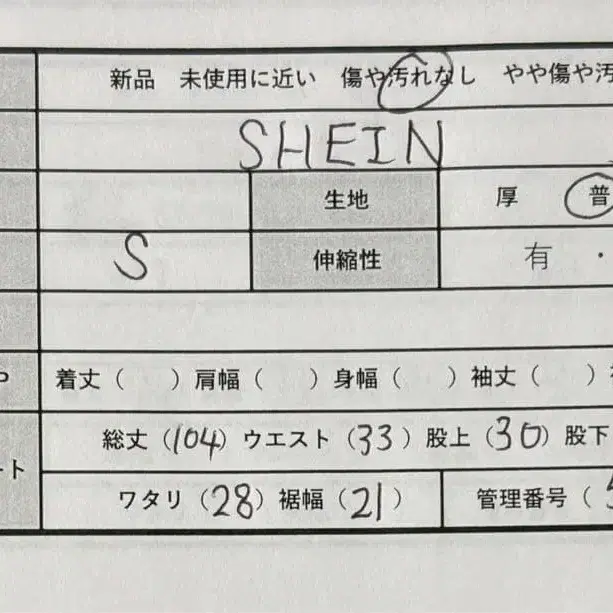 新品 未使用に近い 傷や汚れなし やや傷や汚
SHEIN
生地 厚 普
S 伸縮性 有 ・
P 着丈( ) 肩幅( ) 身幅( ) 袖丈( )
総丈(104) ウエスト(33) 股上(30) 股下
ート
ワタリ(28) 裾幅(21) 管理番号(